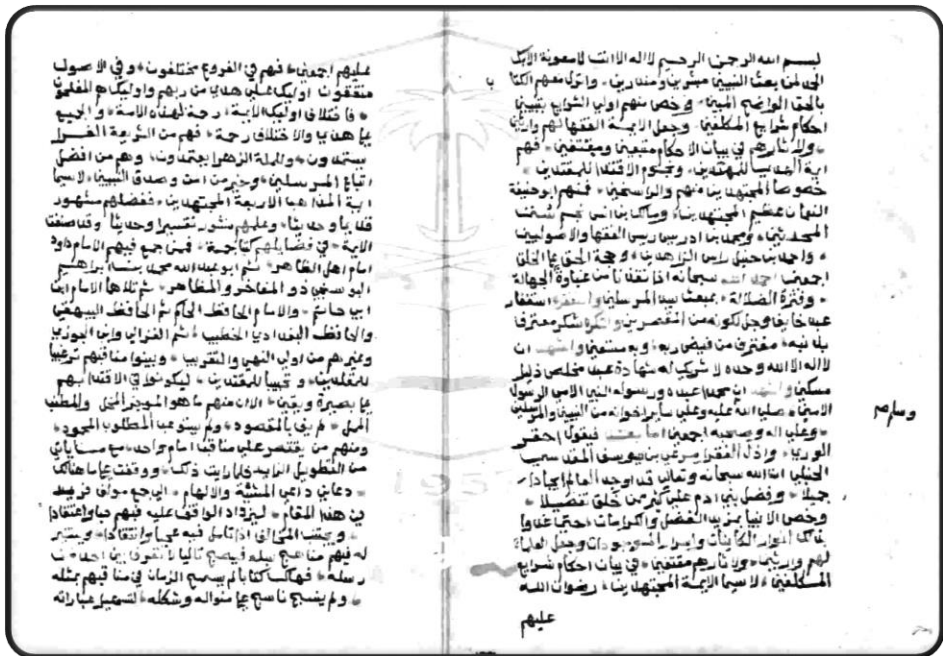 بسم الله الرحمن الرحيم لا اله الا انت لا معونة الا بك
الحمد لمن بعث النبيين مبشرين ومنذرين وانزل معهم الكتا
بالحق الواضح المبين وخص منهم اولي الشرايع بتبيين
احكام شرايع المكلفين وجعل الايمة الفقها لهم وارثين
ولاثارهم في بيان الاحكام متبعين ومقتفين فهم
ايمة الهدى للمهتدين ونجوم الاقتدا للمقتدين
خصوصا المجتهدين منهم والراسخين فمنهم ابو حنيفة
النعمان عظيم المجتهدين ومالك بن انس نجم
المحدثين ومحمد بن ادريس ريس الفقها والاصوليين
واحمد بن حنبل راس الزاهدين وحجة الحق على الخلق
اجمعين احمد الله سبحانه اذ انقذنا من غباوة الجهالة
وفترة الضلالة بمبعث سيد المرسلين واستغفره استغفار
عبد خايف وجل لكونه من المقصرين واشكره شكر معترف
بذنبه مغترف من فيض ربه وبه مستعين واشهد ان
لا اله الا الله وحده لا شريك له شهادة عبد مخلص ذليل
مسكين واشهد ان محمدا عبده ورسوله النبي الامي الرسول
الامين صلى الله عليه وعلى ساير اخوانه من النبيين والمرسلين
وسلم
وعلى اله وصحبه اجمعين اما بعد فيقول احقر
الورى واذل الفقرا مرعي بن يوسف المقدسي
الحنبلي ان الله سبحانه وتعالى قد اوجد العالم ايجادا
جميلا وفضل بني ادم على كثير ممن خلق تفضيلا
وخص الانبيا بمزيد الفضل والكرامات حتى
الكاينات الموجودات وجعل العلماء
لهم وارثين ولاثارهم مقتفين في بيان احكام شرايع
المكلفين لا سيما الايمة المجتهدين رضوان الله
عليهم
عليهم اجمعين فهم في الفروع مختلفون وفي الاصول
متفقون اوليك على هدى من ربهم واوليك هم المفلحون
فاختلاف اوليك الايمة رحمة لهذه الامة والجميع
على هدى والاختلاف رحمة فهم من الشريعة الغرا
يستمدون وللملة الزهرا يعتمدون وهم من افضل
اتباع المرسلين وخير من امن وصدق النبيين لا سيما
ايمة المذاهب الاربعة المجتهدين ففضلهم مشهود
قديما وحديثا وعليهم منثور تفسيرا وحديثا وقد صنفت
الايمة في فضايلهم كتبا جمة فممن جمع فيهم الامام داود
امام اهل الظاهر ثم ابو عبد الله محمد بن ابراهيم
البوسنجي ذو المفاخر والمظاهر ثم تلاهما الامام ابن
ابي حاتم والامام الحافظ الحاكم ثم الحافظ البيهقي
والحافظ البغدادي الخطيب ثم الغزالي وابن الجوزي
وغيرهم من اولي النهى والتقريب وبينوا مناقبهم ترغيبا
للمقلدين وتحبيبا للمقتدين ليكونوا في الاقتدا بهم
على بصيرة ويقين الا ان منهم ما هو الموجز المخل والمطنب
الممل لم يف بالمقصود ولم يبد عند المطلوب المجود
ومنهم من يقتصر على مناقب امام واحد مع
من التطويل الزايد فلما رايت ذلك ووقفت على ما هنالك
دعاني داعي المشيئة والالهام الى جمع مولف فريد
في هذا المقام ليزداد الواقف عليه فيهم حبا واعتقادا
ويجتنب اذا تامل فيه وانتقادا ويتبين
له فيهم مناهج سبيله فيصبح تاليا لا نفرق بين احد من
رسله فهاك كتابا لم يسمح الزمان في مناقبهم بمثله
ولم ينسج ناسج على منواله وشكله لتسهيل عباراته